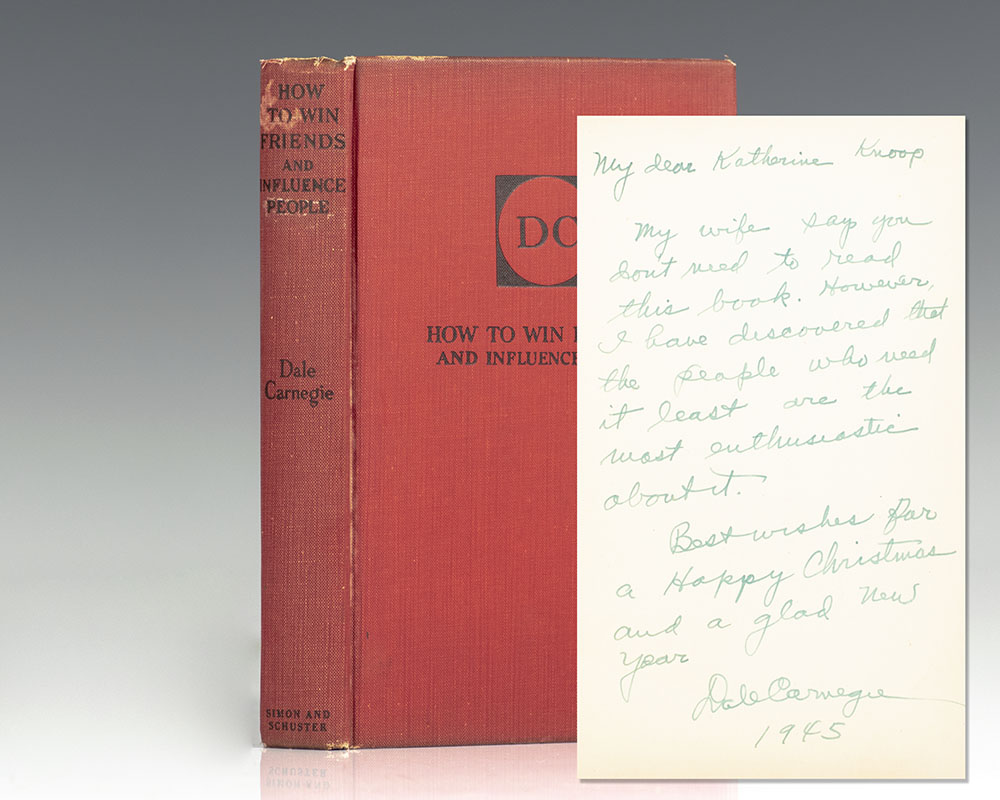 HOW
TO WIN
FRIENDS
AND
INFLUENCE
PEOPLE
Dale
Carnegie
SIMON AND
SCHUSTER
DC
HOW TO WIN
AND INFLUENCE
My dear Katherine Knoop
My wife says you
dont need to read
this book. However,
I have discovered that
the people who need
it least are the
most enthusiastic
about it.
Best wishes for
a Happy Christmas
and a glad New
Year
Dale Carnegie
1945